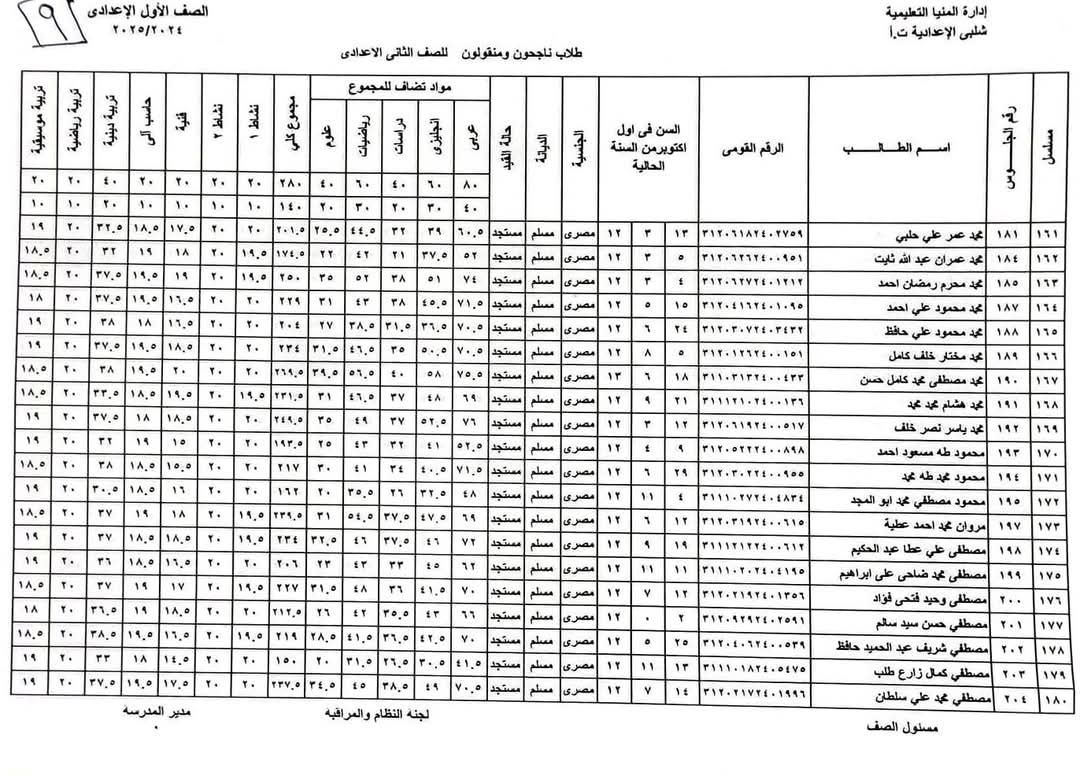 إدارة المنيا التعليمية
شلبى الإعدادية ت.أ
الصف الأول الإعدادى
٢٠٢٥/٢٠٢٤
٩
طلاب ناجحون ومنقولون للصف الثانى الاعدادى
مسلسل رقم الجلوس اسم الطالب الرقم القومى السن فى اول اكتوبر من السنة الحالية الجنسية الديانة حالة القيد مواد تضاف للمجموع عربى انجليزى دراسات رياضيات علوم مجموع كلي نشاط ١ نشاط ٢ فنية حاسب آلى تربية دينية تربية رياضية تربية موسيقية
٨٠ ٦٠ ٤٠ ٦٠ ٤٠ ٢٨٠ ٢٠ ٢٠ ٢٠ ٢٠ ٤٠ ٢٠ ٢٠
٤٠ ٣٠ ٢٠ ٣٠ ٢٠ ١٤٠ ١٠ ١٠ ١٠ ١٠ ٢٠ ١٠ ١٠
١٦١ ١٨١ محمد عمر علي حلبي ٣١٢٠٦١٨٢٤٠٢٧٥٩ ١٣ ٣ ١٢ مصرى مسلم مستجد ٦٠.٥ ٣٩ ٣٢ ٤٤.٥ ٢٥.٥ ٢٠١.٥ ٢٠ ٢٠ ١٧.٥ ١٨.٥ ٣٢.٥ ٢٠ ١٩
١٦٢ ١٨٤ محمد عمران عبد الله ثابت ٣١٢٠٦٢٦٢٤٠٠٩٥١ ٥ ٣ ١٢ مصرى مسلم مستجد ٥٢ ٣٧.٥ ٢١ ٤٢ ٢٢ ١٧٤.٥ ١٩.٥ ٢٠ ١٨ ١٩ ٣٢ ٢٠ ١٨.٥
١٦٣ ١٨٥ محمد محرم رمضان احمد ٣١٢٠٦٢٧٢٤٠١٢١٢ ٤ ٣ ١٢ مصرى مسلم مستجد ٧٤ ٥١ ٣٨ ٥٢ ٣٥ ٢٥٠ ٢٠ ٢٠ ١٩ ١٩.٥ ٣٧.٥ ٢٠ ١٨.٥
١٦٤ ١٨٧ محمد محمود علي احمد ٣١٢٠٤١٦٢٤٠١٠٩٥ ١٥ ٥ ١٢ مصرى مسلم مستجد ٧١.٥ ٤٥.٥ ٣٨ ٤٣ ٣١ ٢٢٩ ٢٠ ٢٠ ١٦.٥ ١٩.٥ ٣٧.٥ ٢٠ ١٨
١٦٥ ١٨٨ محمد محمود علي حافظ ٣١٢٠٣٠٧٢٤٠٣٤٣٢ ٢٤ ٦ ١٢ مصرى مسلم مستجد ٧٠.٥ ٣٦.٥ ٣١.٥ ٣٨.٥ ٢٧ ٢٠٤ ٢٠ ٢٠ ١٦.٥ ١٨ ٣٨ ٢٠ ١٩
١٦٦ ١٨٩ محمد مختار خلف كامل ٣١٢٠١٢٦٢٤٠٠١٥١ ٥ ٨ ١٢ مصرى مسلم مستجد ٧٠.٥ ٥٠.٥ ٣٥ ٤٦.٥ ٣١.٥ ٢٣٤ ٢٠ ٢٠ ١٨.٥ ١٩.٥ ٣٧.٥ ٢٠ ١٩
١٦٧ ١٩٠ محمد مصطفى محمد كامل حسن ٣١١٠٣١٣٢٤٠٠٤٣٣ ١٨ ٦ ١٣ مصرى مسلم مستجد ٧٥.٥ ٥٨ ٤٠ ٥٦.٥ ٣٩.٥ ٢٦٩.٥ ٢٠ ٢٠ ٢٠ ١٩.٥ ٣٨ ٢٠ ١٨.٥
١٦٨ ١٩١ محمد هشام محمد محمد ٣١١١٢١٠٢٤٠٠١٣٦ ٢١ ٩ ١٢ مصرى مسلم مستجد ٦٩ ٤٨ ٣٧ ٤٦.٥ ٣١ ٢٣١.٥ ١٩.٥ ٢٠ ١٩.٥ ١٨.٥ ٣٣.٥ ٢٠ ١٨.٥
١٦٩ ١٩٢ محمد ياسر نصر خلف ٣١٢٠٦١٩٢٤٠٠٥١٧ ١٢ ٣ ١٢ مصرى مسلم مستجد ٧٦ ٥٢.٥ ٣٧ ٤٩ ٣٥ ٢٤٩.٥ ٢٠ ٢٠ ١٨.٥ ١٨ ٣٧.٥ ٢٠ ١٩
١٧٠ ١٩٣ محمود طه مسعود احمد ٣١٢٠٥٢٢٢٤٠٠٨٩٨ ٩ ٤ ١٢ مصرى مسلم مستجد ٥٢.٥ ٤١ ٣٢ ٤٣ ٢٥ ١٩٣.٥ ٢٠ ٢٠ ١٥ ١٩ ٣٢ ٢٠ ١٩
١٧١ ١٩٤ محمود محمد طه محمد ٣١٢٠٣٠٢٢٤٠٠٩٥٥ ٢٩ ٦ ١٢ مصرى مسلم مستجد ٧١.٥ ٤٠.٥ ٣٤ ٤١ ٣٠ ٢١٧ ٢٠ ٢٠ ١٥.٥ ١٨.٥ ٣٨ ٢٠ ١٨.٥
١٧٢ ١٩٥ محمود مصطفي محمد ابو المجد ٣١١١٠٢٧٢٤٠٤٨٣٤ ٤ ١١ ١٢ مصرى مسلم مستجد ٤٨ ٣٢.٥ ٢٦ ٣٥.٥ ٢٠ ١٦٢ ٢٠ ٢٠ ١٦ ١٨.٥ ٣٠.٥ ٢٠ ١٩
١٧٣ ١٩٧ مروان محمد احمد عطية ٣١٢٠٣١٩٢٤٠٠٦١٥ ١٢ ٦ ١٢ مصرى مسلم مستجد ٦٩ ٤٧.٥ ٣٧.٥ ٥٤.٥ ٣١ ٢٣٩.٥ ١٩.٥ ٢٠ ١٨ ١٩ ٣٧ ٢٠ ١٨.٥
١٧٤ ١٩٨ مصطفي علي عطا عبد الحكيم ٣١١١٢١٢٢٤٠٠٦١٢ ١٩ ٩ ١٢ مصرى مسلم مستجد ٧٢ ٤٦ ٣٧.٥ ٤٦ ٣٢.٥ ٢٣٤ ١٩.٥ ٢٠ ١٨ ١٨.٥ ٣٧ ٢٠ ١٩
١٧٥ ١٩٩ مصطفي محمد ضاحى على ابراهيم ٣١١١٠٢٠٢٤٠٤١٩٥ ١١ ١١ ١٢ مصرى مسلم مستجد ٦٢ ٤٥ ٣٣ ٤٣ ٢٣ ٢٠٦ ٢٠ ٢٠ ١٦.٥ ١٨.٥ ٣٦ ٢٠ ١٩
١٧٦ ٢٠٠ مصطفي وحيد فتحى فؤاد ٣١٢٠٢١٩٢٤٠١٣٥٦ ١٢ ٧ ١٢ مصرى مسلم مستجد ٧٠ ٤١.٥ ٣٦ ٤٨ ٣١.٥ ٢٢٧ ١٩.٥ ٢٠ ١٧ ١٩ ٣٧ ٢٠ ١٨.٥
١٧٧ ٢٠١ مصطفي حسن سيد سالم ٣١٢٠٩٢٩٢٤٠٢٥٩١ ٢ ٠ ١٢ مصرى مسلم مستجد ٦٦ ٤٣ ٣٥.٥ ٤٢ ٢٦ ٢١٢.٥ ٢٠ ٢٠ ١٨.٥ ١٩ ٣٦.٥ ٢٠ ١٨
١٧٨ ٢٠٢ مصطفي شريف عبد الحميد حافظ ٣١٢٠٤٠٦٢٤٠٠٥٣٩ ٢٥ ٥ ١٢ مصرى مسلم مستجد ٧٠ ٤٢.٥ ٣٦.٥ ٤١.٥ ٢٨.٥ ٢١٩ ١٩.٥ ٢٠ ١٦.٥ ١٩.٥ ٣٨.٥ ٢٠ ١٨.٥
١٧٩ ٢٠٣ مصطفي كمال زارع طلب ٣١١١٠١٨٢٤٠٥٤٧٥ ١٣ ١١ ١٢ مصرى مسلم مستجد ٤١.٥ ٣٠.٥ ٢٦.٥ ٣١.٥ ٢٠ ١٥٠ ٢٠ ٢٠ ١٤.٥ ١٨ ٣٣ ٢٠ ١٩
١٨٠ ٢٠٤ مصطفي محمد علي سلطان ٣١٢٠٢١٧٢٤٠١٩٩٦ ١٤ ٧ ١٢ مصرى مسلم مستجد ٧٠.٥ ٤٩ ٣٨.٥ ٤٥ ٣٤.٥ ٢٣٧.٥ ٢٠ ٢٠ ١٧.٥ ١٩.٥ ٣٧.٥ ٢٠ ١٩
مسئول الصف لجنة النظام والمراقبة مدير المدرسة